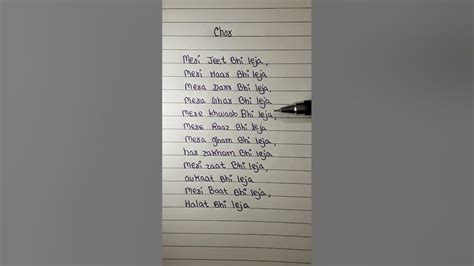 Chor
Meri Jeet Bhi leja,
Meri Haar Bhi leja
Mera Darr Bhi leja,
Mera Ghar Bhi leja
Mere khwaab Bhi leja,
Mere Raaz Bhi leja
Mera gham Bhi leja,
har zakham Bhi leja
Meri zaat Bhi leja,
aukaat Bhi leja
Meri Baat Bhi leja,
Halat Bhi leja